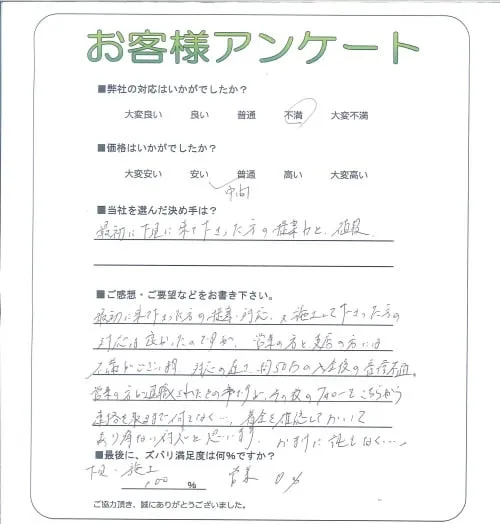 お客様アンケート
■弊社の対応はいかがでしたか?
大変良い 良い 普通 不満 大変不満
■価格はいかがでしたか?
大変安い 安い 普通 高い 大変高い
中間
■当社を選んだ決め手は?
最初に下見に来て下さった方の提案力と、値段
■ご感想・ご要望などをお書き下さい。
最初に来て下さった方の提案、対応、又施工して下さった方の
対応は良かったのですが、営業の方と支店の方には
不満がございます 対応の 約50万の入金後の音信不通。
営業の方が退職されたとの事ですが、その後のフォローもこちらから
連絡を取るまで何もなく…、着金を確認しておいて
あり得ない対応と思います。おまけに もなく…
■最後に、ズバリ満足度は何%ですか?
下見・施工 100 % 営業 0%
ご協力頂き、誠にありがとうございました。